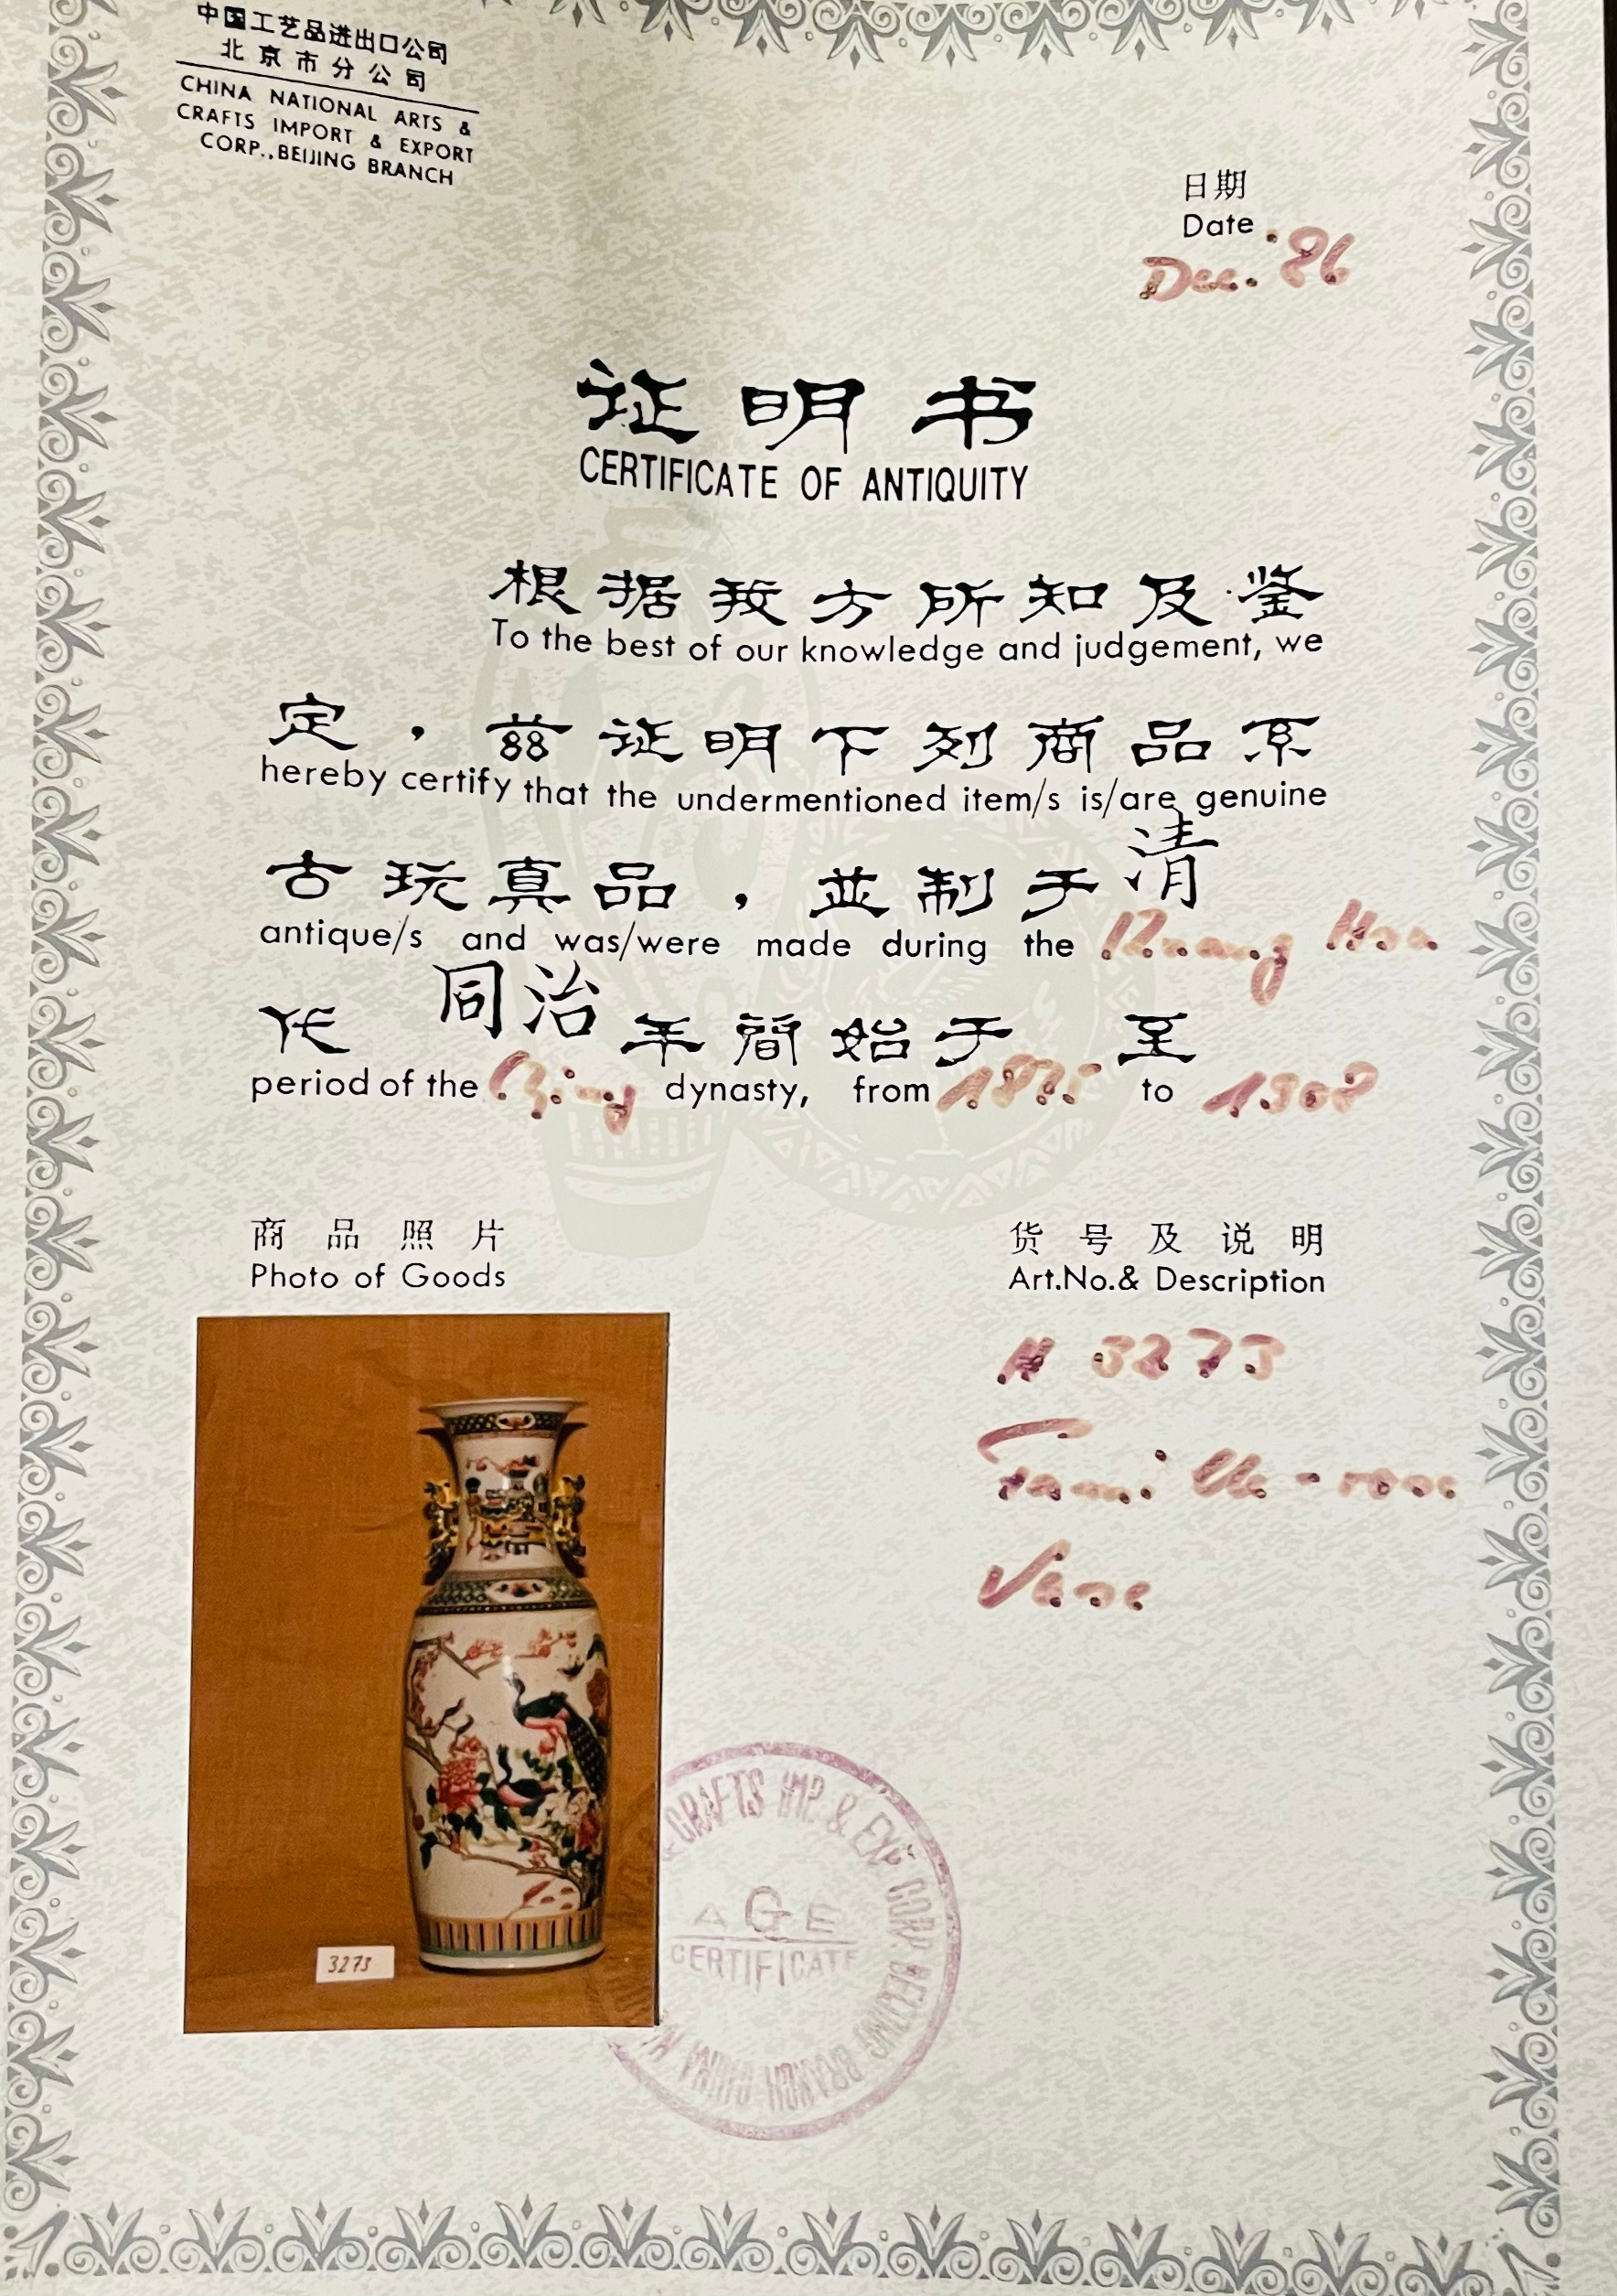 中国工艺品进出口公司
北京市分公司
CHINA NATIONAL ARTS &
CRAFTS IMPORT & EXPORT
CORP.,BEIJING BRANCH
日期
Date
Dec. '86
证明书
CERTIFICATE OF ANTIQUITY
根据我方所知及鉴
To the best of our knowledge and judgement, we
定，兹证明下列商品系
hereby certify that the undermentioned item/s is/are genuine
古玩真品，並制于清
antique/s and was/were made during the Kuang
代 同治 年簡始于 至
period of the Qing dynasty, from 1875 to 1908
商品照片
Photo of Goods
货号及说明
Art.No.& Description
# 3273
Vase
3273
CRAFTS IMP. & EXP. CORP. BEIJING BRANCH CHINA
AGE
CERTIFICATE